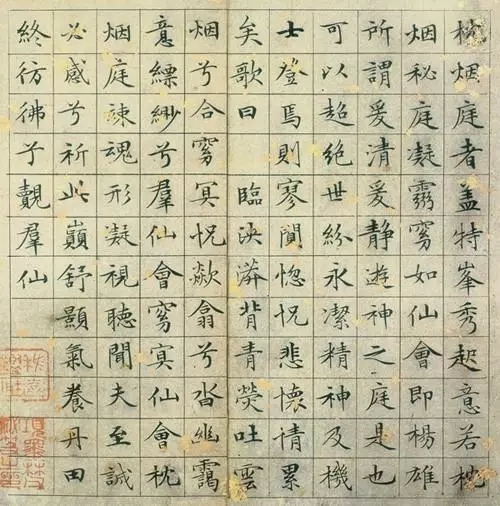 枕烟庭者盖特峯秀起意若枕
烟秘庭凝虛窅如仙會即楊雄
所謂爰清爰靜遊神之庭是也
可以超絕世紛永潔精神及機
士登焉則寥闃惚怳悲懷情累
矣歌曰 臨泱漭背青熒吐雲
烟兮合窅冥怳欻翕兮沓幽靄
意縹緲兮羣仙會窅冥仙會枕
烟庭竦魂形凝視聽聞夫至誠
必感兮祈此巔舒顥氣養丹田
終彷彿乎覿羣仙